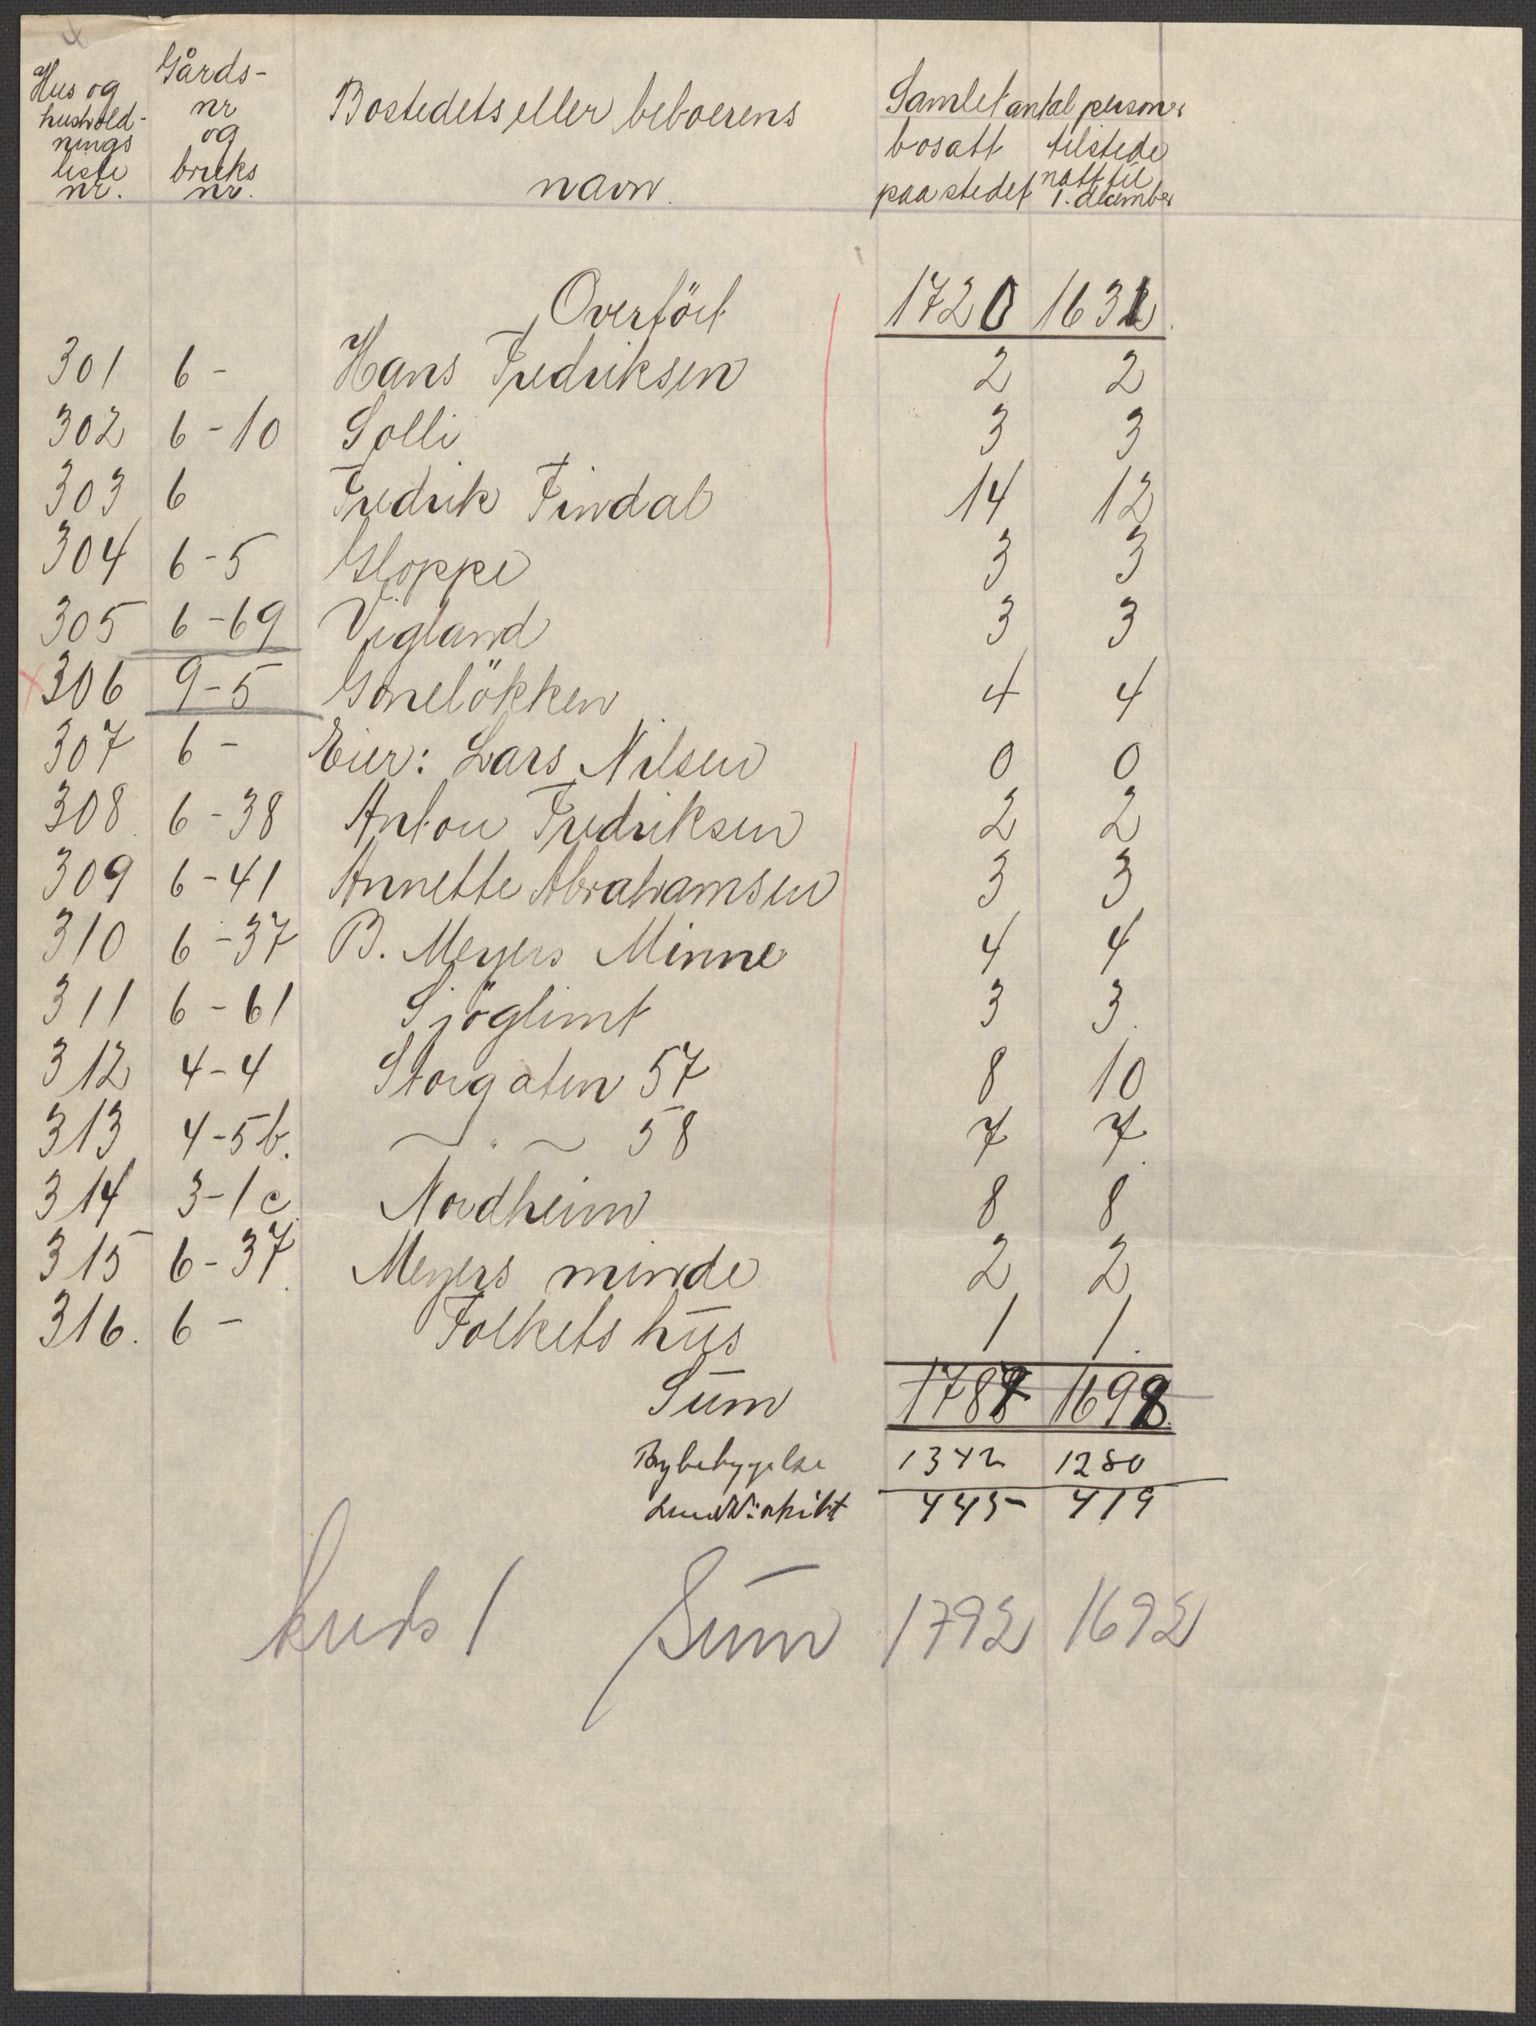 Hus og
hushold-
nings
liste
nr.
Gårds-
nr
og
bruks
nr.
Bostedets eller beboerens
navn
Samlet antal personer
bosatt
paa stedet
tilstede
natt til
1. december
Overfört 1720 1631
301 6 - Hans Fredriksen 2 2
302 6 - 10 Solli 3 3
303 6 Fredrik Findal 14 12
304 6 - 5 Gloppe 3 3
305 6 - 69 Vigland 3 3
306 9 - 5 4 4
307 6 - Eier: Lars Nilsen 0 0
308 6 - 38 Anton Fredriksen 2 2
309 6 - 41 Annette Abrahamsen 3 3
310 6 - 37 B. Meyers Minne 4 4
311 6 - 61 Sjöglimt 3 3
312 4 - 4 Storgaten 57 8 10
313 4 - 5b. — " — 58 7 7
314 3 - 1c Nordheim 8 8
315 6 - 37 Meyers minde 2 2
316. 6 - Folkets hus 1 1
Sum 1787 1698
Bybebyggelse 1342 1280
445 419
kreds 1 Sum 1792 1692